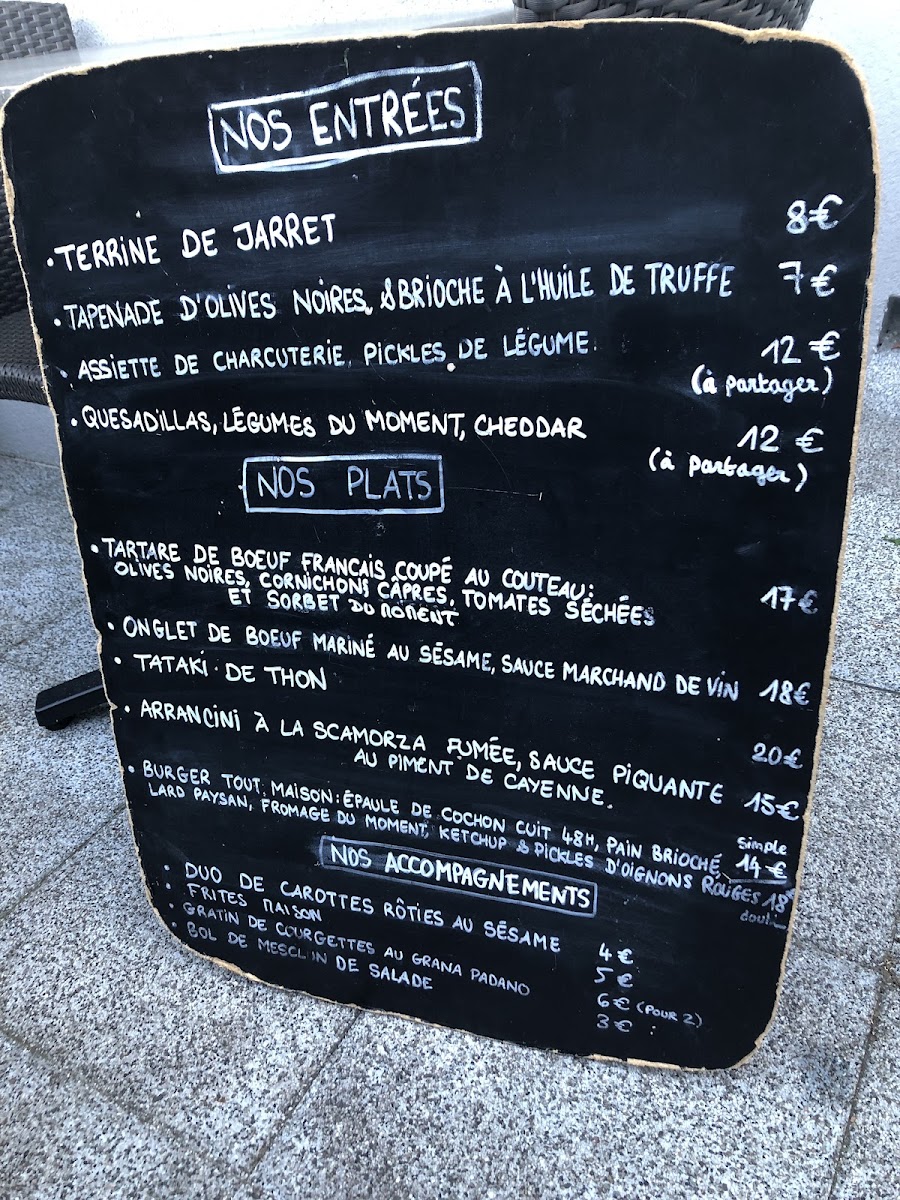 NOS ENTRÉES
• TERRINE DE JARRET 8€
• TAPENADE D'OLIVES NOIRES, & BRIOCHE À L'HUILE DE TRUFFE 7€
• ASSIETTE DE CHARCUTERIE, PICKLES DE LÉGUME. 12€
(à partager)
• QUESADILLAS, LÉGUMES DU MOMENT, CHEDDAR 12€
(à partager)
NOS PLATS
• TARTARE DE BOEUF FRANCAIS COUPÉ AU COUTEAU:
OLIVES NOIRES, CORNICHONS CÂPRES, TOMATES SÉCHÉES 17€
ET SORBET DU MOMENT
• ONGLET DE BOEUF MARINÉ AU SÉSAME, SAUCE MARCHAND DE VIN 18€
• TATAKI DE THON 20€
• ARRANCINI À LA SCAMORZA FUMÉE, SAUCE PIQUANTE 15€
AU PIMENT DE CAYENNE.
• BURGER TOUT MAISON: ÉPAULE DE COCHON CUIT 48H, PAIN BRIOCHÉ, simple 14€
LARD PAYSAN, FROMAGE DU MOMENT, KETCHUP & PICKLES D'OIGNONS ROUGES 18€
NOS ACCOMPAGNEMENTS
• DUO DE CAROTTES RÔTIES AU SÉSAME 4€
• FRITES MAISON 5€
• GRATIN DE COURGETTES AU GRANA PADANO 6€ (POUR 2)
• BOL DE MESCLUN DE SALADE 3€